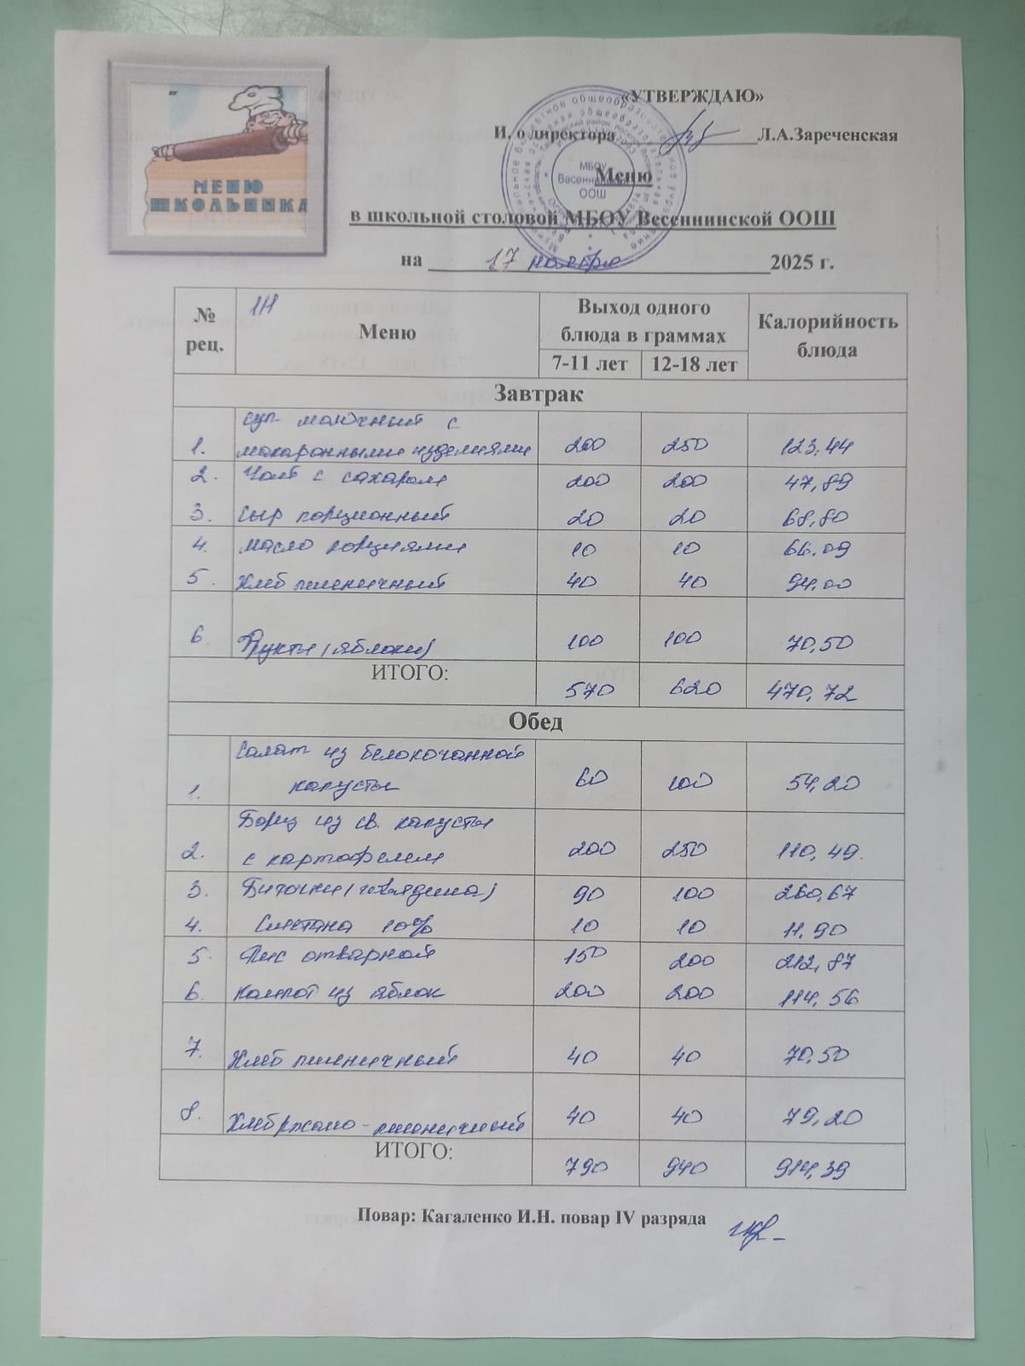 МЕНЮ
ШКОЛЬНИКА
«УТВЕРЖДАЮ»
И. о директора Л.А.Зареченская
МБОУ
ООШ
Меню
в школьной столовой МБОУ Весеннинской ООШ
на 17 ноября 2025 г.
№ рец. Меню Выход одного блюда в граммах Калорийность блюда
7-11 лет 12-18 лет
Завтрак
Суп молочный с
1. макаронными изделиями 200 250 123,44
2. Чай с сахаром 200 200 47,89
3. Сыр порционный 20 20 68,80
4. Масло порциями 10 10 66,09
5. Хлеб пшеничный 40 40 94,00
6. Фрукты (яблоки) 100 100 70,50
ИТОГО:
570 620 470,72
Обед
Салат из белокочанной
1. капусты 60 100 54,20
Борщ из св. капусты
2. с картофелем 200 250 110,49
3. Биточки (говядина) 90 100 260,67
4. Сметана 10% 10 10 11,90
5. Рис отварной 150 200 212,87
6. Компот из яблок 200 200 114,56
7. Хлеб пшеничный 40 40 70,50
8. Хлеб ржано-пшеничный 40 40 79,20
ИТОГО:
790 940 914,39
Повар: Кагаленко И.Н. повар IV разряда